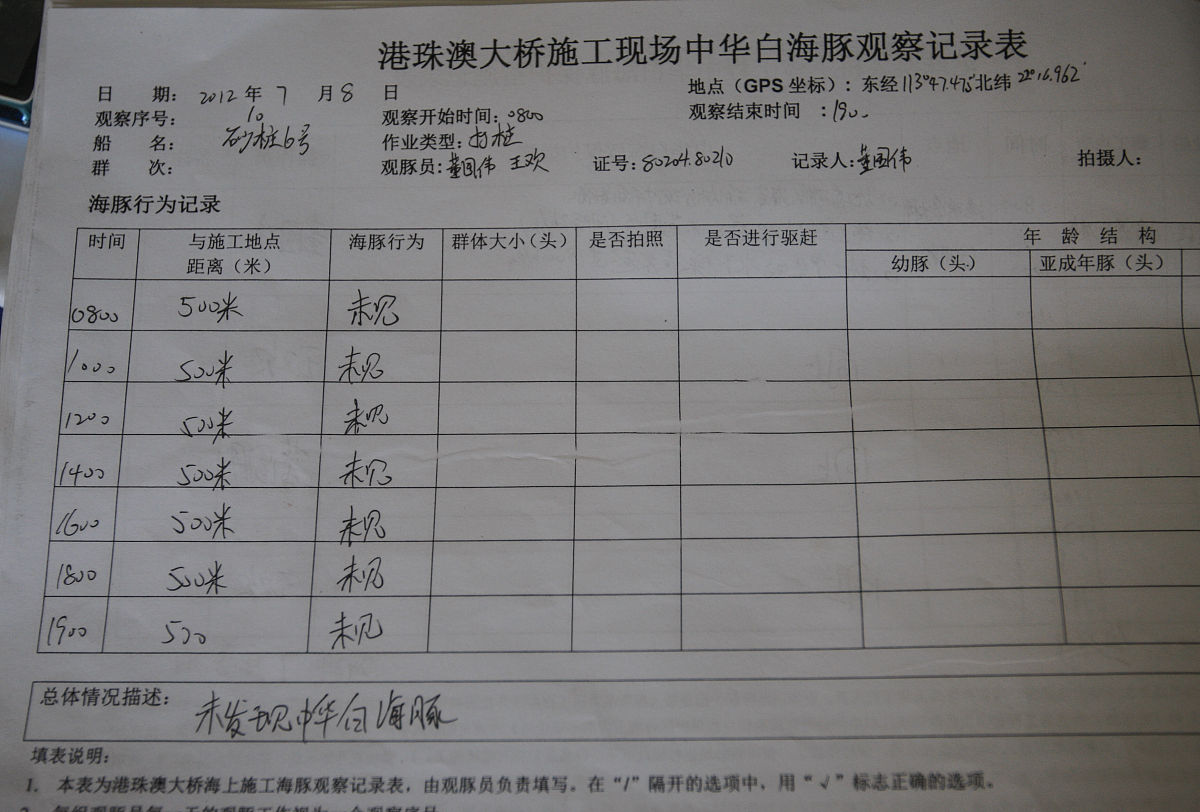 港珠澳大桥施工现场中华白海豚观察记录表
日 期: 2012 年 7 月 8 日 地点(GPS 坐标): 东经 113°47.475′ 北纬 22°16.962′
观察序号: 10 观察开始时间: 0800 观察结束时间 : 1900
船 名: 砂桩6号 作业类型: 打桩
群 次: 观豚员: 董国伟 王欢 证号: 80204.80210 记录人: 董国伟 拍摄人:
海豚行为记录
时间 与施工地点距离(米) 海豚行为 群体大小(头) 是否拍照 是否进行驱赶 年 龄 结 构
幼豚(头) 亚成年豚(头)
0800 500米 未见
1000 500米 未见
1200 500米 未见
1400 500米 未见
1600 500米 未见
1800 500米 未见
1900 500 未见
总体情况描述: 未发现中华白海豚
填表说明:
1. 本表为港珠澳大桥海上施工海豚观察记录表，由观豚员负责填写。在“/”隔开的选项中，用“√”标志正确的选项。